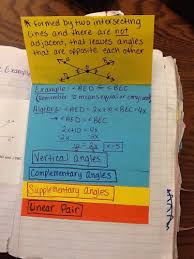 * formed by two intersecting
lines and there are not
adjacent, that leaves angles
that are opposite each other
Example: <AED ≅ <BEC
(Remember ≅ means equal or congruent)
Algebra: <AED = 2x+10 <BEC = 4x
→ <AED = <BEC
2x+10 = 4x
-2x -2x
10 = 2x x=5
Vertical angles
Complementary angles
Supplementary angles
Linear Pair
Example